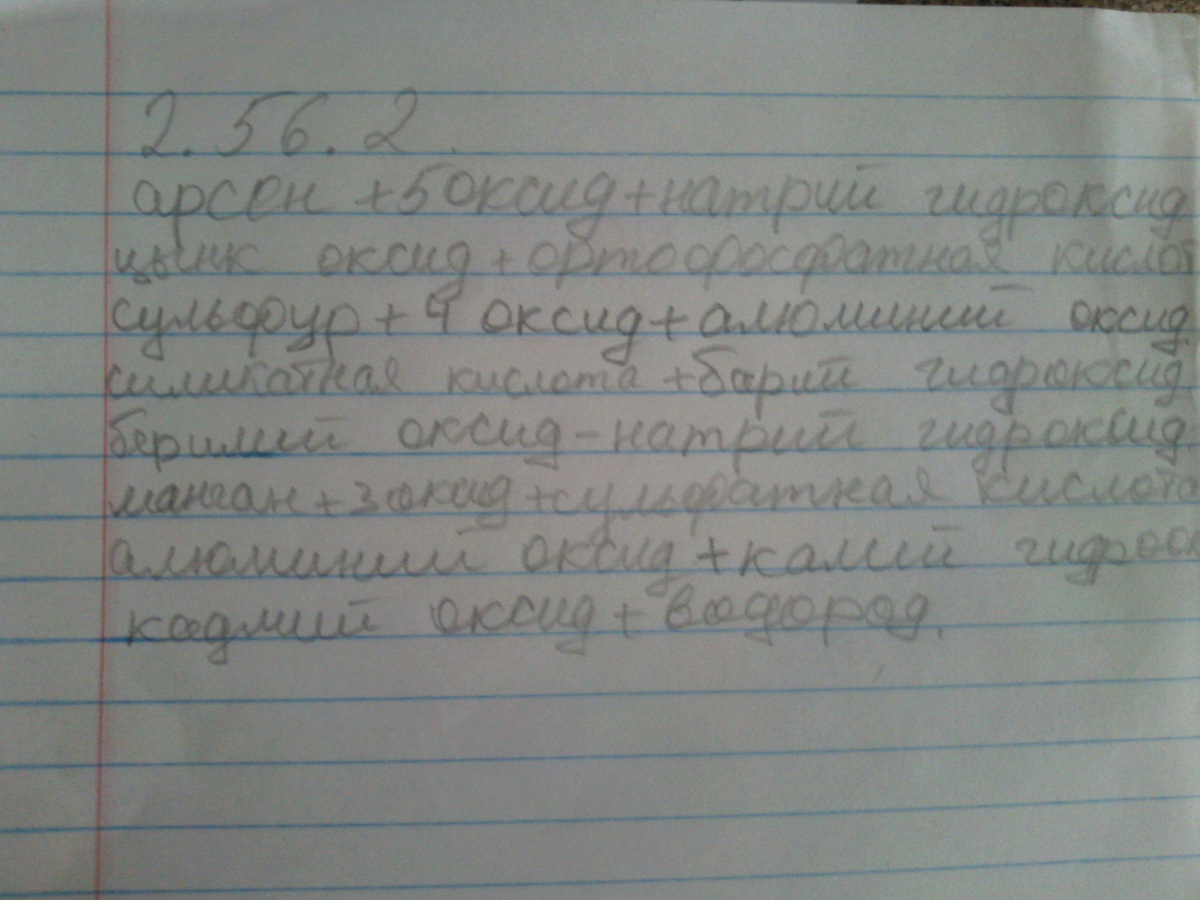 2.56.2.
арсен +5 оксид + натрий гидроксид
цынк оксид + ортофосфатная кислот
сульфур + 4 оксид + алюминий оксид.
силикатная кислота + барий гидроксид.
берилий оксид - натрий гидроксид.
манган + 3 окид + сульфатная кислота
алюминий оксид + калий гидроок
кадмий оксид + водород.